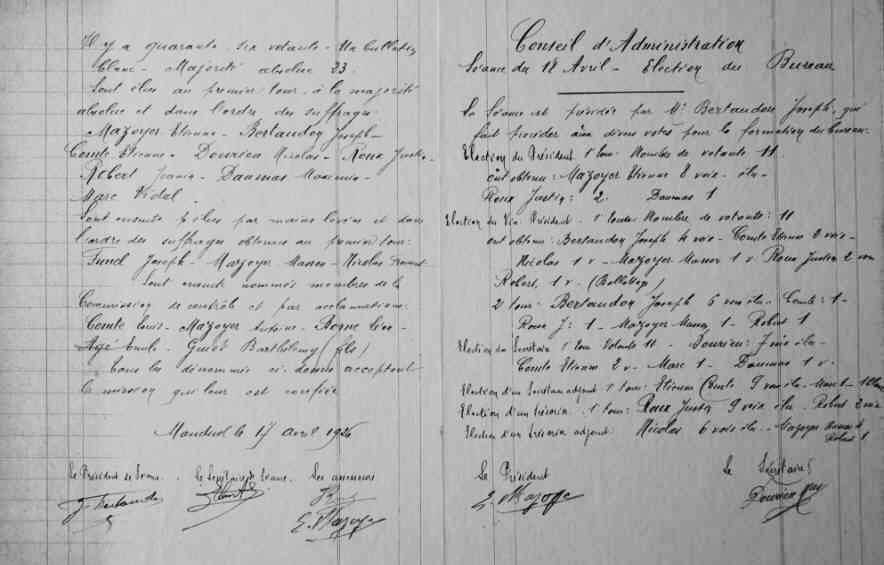 Il y a quarante six votants - Un bulletin
blanc - Majorité absolue 23.
Sont élus au premier tour, à la majorité
absolue et dans l'ordre des suffrages:
Mazoyer Etienne - Bertaudon Joseph -
Comte Etienne - Dourieu Nicolas - Roux Justin -
Robert - Daumas Maximin -
Marc Vidal.
Sont ensuite élus par mains levées et dans
l'ordre des suffrages obtenus au premier tour:
Funel Joseph - Mazoyer Manon - Nicolas
Sont ensuite nommés membres de la
Commission de contrôle et par acclamations:
Comte Louis - Mazoyer Antoine - Borne Léon -
Agé Emile - Guiot Barthélemy (fils)
Tous les dénommés ci-dessus acceptent
la mission qui leur est confiée
Manduel le 17 avril 1926
Le Président de Séance. Le Secrétaire de Séance. Les assesseurs
J. Bertaudon
E. Mazoyer
Conseil d'Administration
Séance du 18 Avril - Election du Bureau
La Séance est présidée par Mr Bertaudon Joseph, qui
fait procéder aux divers votes pour la formation du bureau.
Election du Président. 1 tour. Nombre de votants 11.
ont obtenu: Mazoyer Etienne 8 voix - élu -
Roux Justin: 2. Daumas 1
Election du Vice Président. 1 tour. Nombre de votants: 11
ont obtenu: Bertaudon Joseph 4 voix - Comte Etienne 2 voix -
Nicolas 1 v - Mazoyer Manon 1 v. Roux Justin 2 voix
Robert, 1 v. (Ballottage)
2 tour: Bertaudon Joseph 6 voix élu. Comte: 1 -
Roux J: 1 - Mazoyer Manon, 1 - Robert 1
Election du Secrétaire 1 tour Votants 11 - Dourieu: 7 voix élu -
Comte Etienne 2 v. Marc 1 - Daumas 1 v.
Election d'un Secrétaire adjoint 1 tour: Etienne Comte 9 voix élu -
Election d'un trésorier. 1 tour: Roux Justin 9 voix élu. Robert 2 voix
Election d'un trésorier adjoint: Nicolas 6 voix élu - Mazoyer Manon 4
Robert 1
Le Président Le Secrétaire
E. Mazoyer Dourieu